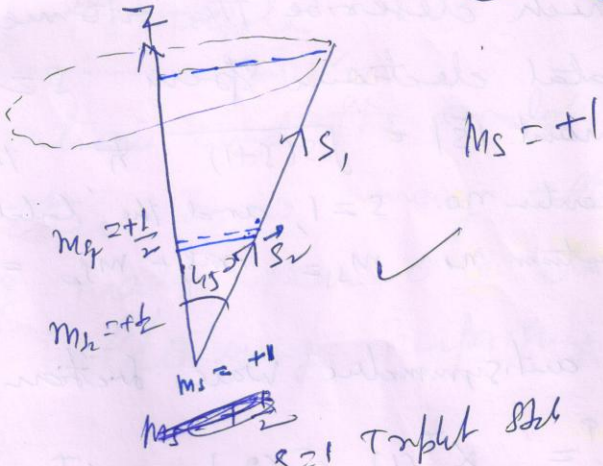 Z
S₁
Ms = +1
ms₁ = +1/2
S₂
45°
ms₂ = +1/2
ms = +1
S=1 Triplet State